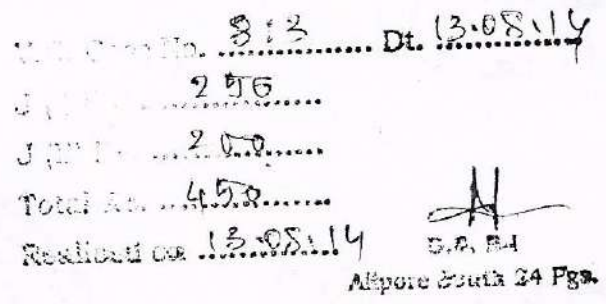 No. 813 Dt. 13.08.14
J 250
J 200
Total 450
Realised on 13.08.14
Alipore South 24 Pgs.